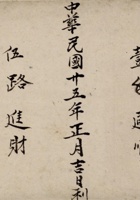 中華民國廿五年正月吉日利
伍路進財